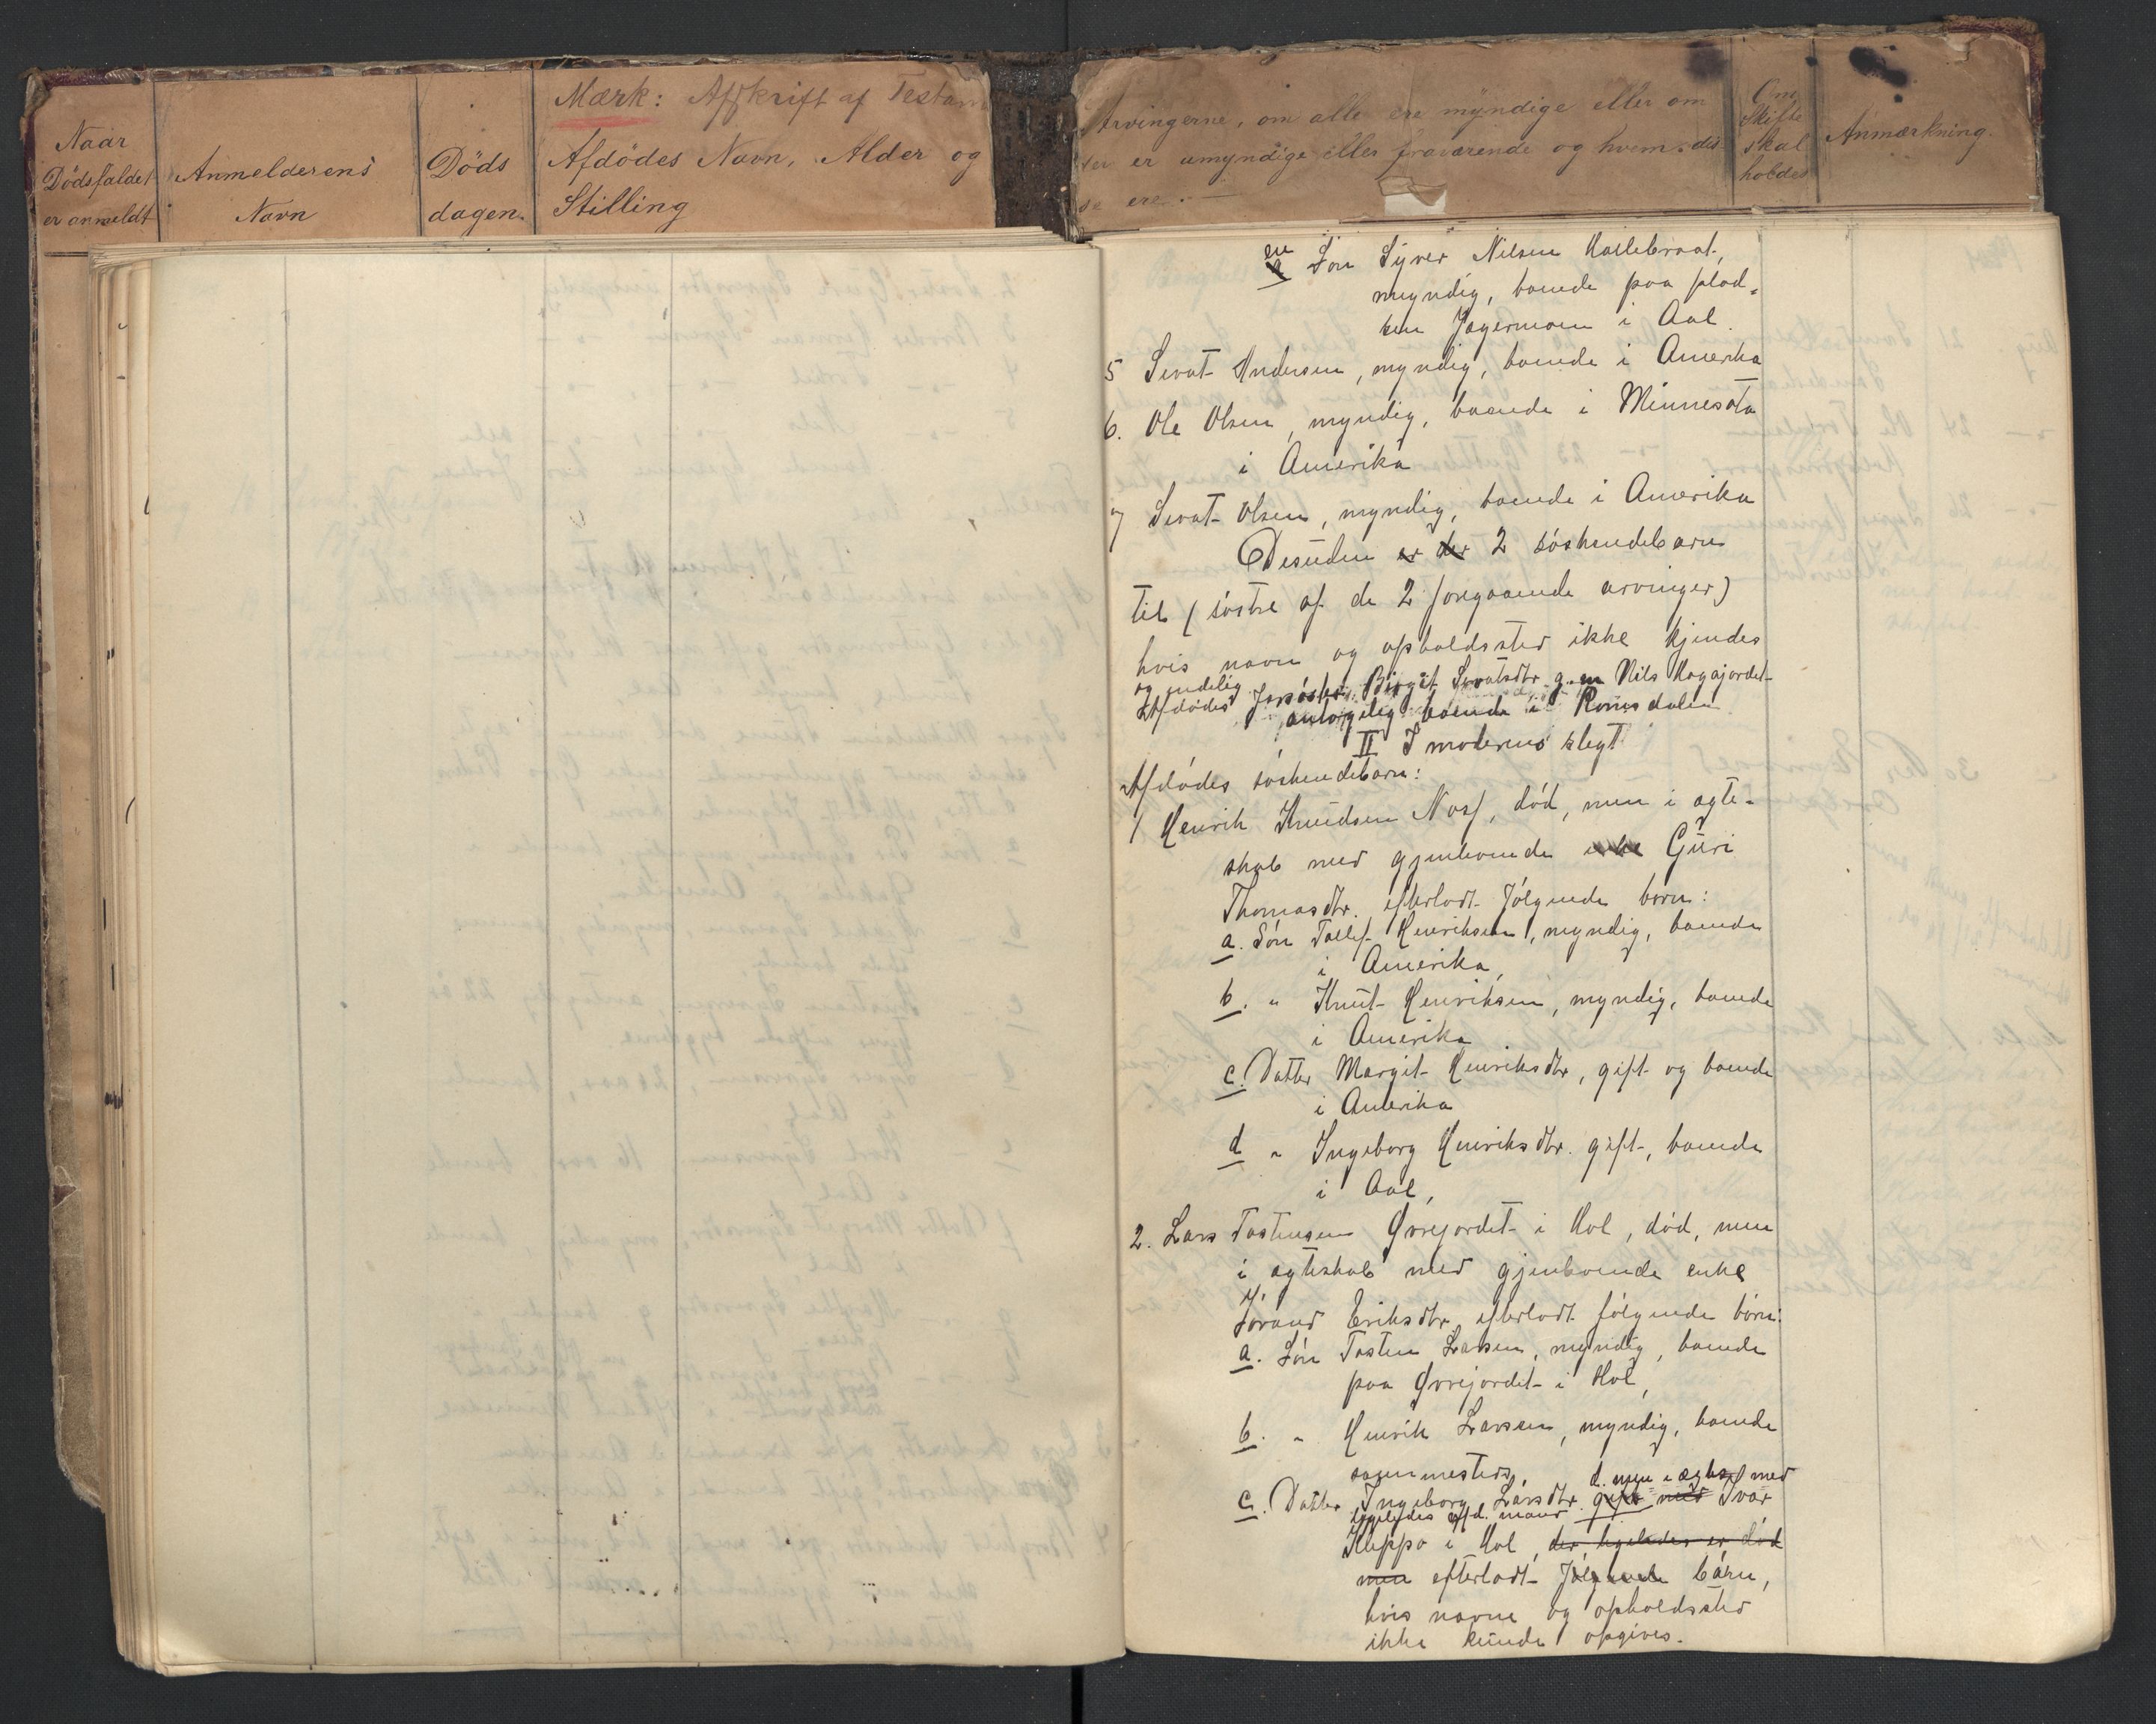 Mærk: Afskrift af Testam
Naar
Dödsfaldet
er anmeldt
Anmelderens
Navn
Döds
dagen.
Afdödes Navn, Alder og
Stilling
Arvingerne, om alle ere myndige eller om
der er umyndige eller fraværende og hvem dis-
se ere.
Om
Skifte
skal
holdes
Anmærkning.
en
a Søn Syver Nilsen Hallebraat,
myndig, boende paa plad-
sen Jagermoen i Aal.
5 Sevat Andersen, myndig, boende i Amerika
6. Ole Olsen, myndig, boende i Minnesota
i Amerika
7 Sevat Olsen, myndig, boende i Amerika
Desuden er der 2 søskendebarn
til (søstre af de 2 foregaaende arvinger)
hvis navn og opholdssted ikke kjendes
og endelig
Afdødes farsøster Birgit Sevatsdtr. g. m Nils Hagajordet
antagelig boende i Romsdalen
II I moderens slegt
Afdødes søskendebarn:
1 Henrik Knudsen Nos, død, men i ægte-
skab med gjenboende enke Guri
Thomasdtr. efterladt følgende børn:
a. Søn Tollef Henriksen, myndig, boende
i Amerika,
b. " Knut Henriksen, myndig, boende
i Amerika
c. Datter Margit Henriksdtr, gift og boende
i Amerika
d " Ingeborg Henriksdtr. gift, boende
i Aal,
2. Lars Tostensen Øvrejordet i Hol, død, men
i ægteskab med gjenboende enke
Jørand Eriksdtr. efterladt følgende børn:
a. Søn Tosten Larsen, myndig, boende
paa Øvrejordet i Hol,
b. " Henrik Larsen, myndig, boende
sammesteds,
d. men i ægtes. med
c. Datter Ingeborg Larsdtr. gift med Ivar
ligeledes afd. mand
Kleppo i Hol, der ligeledes er død
men efterladt følgende børn,
hvis navne og opholdssted
ikke kunde opgives.